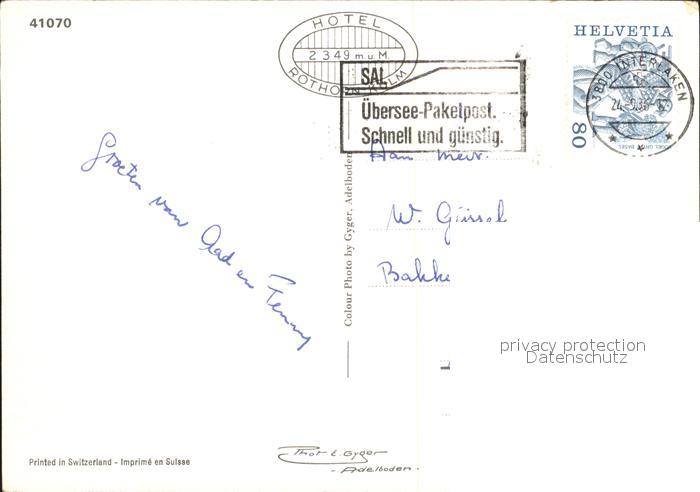 41070
HOTEL
2349 m u M
ROTHORN KULM
SAL
Übersee-Paketpost.
Schnell und günstig.
HELVETIA
80
3800 INTERLAKEN
Groeten van Aad en Fenny
Aan mevr.
W. Güssel
Bakke
Colour Photo by Gyger, Adelboden
privacy protection
Datenschutz
Phot E. Gyger
- Adelboden -
Printed in Switzerland - Imprimé en Suisse